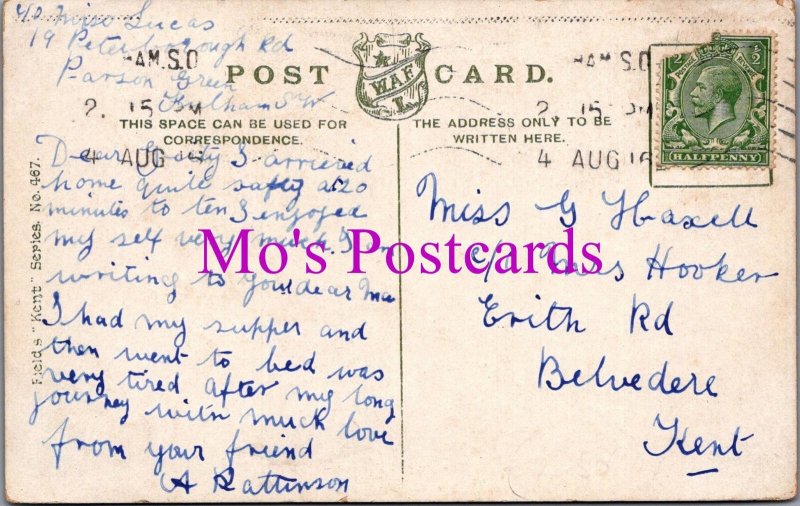 40 Miss Lucas
19 Peterborough Rd
Parson Green
Fulham S W
POST CARD.
W.A.F
THIS SPACE CAN BE USED FOR
CORRESPONDENCE.
THE ADDRESS ONLY TO BE
WRITTEN HERE.
HAM.S.O
2. 15 PM
4 AUG 16
HAM.S.O
2 15 PM
4 AUG 16
HALFPENNY
Dear I arrived
home quite safty at 20
minutes to ten I enjoyed
my self very much. I am
writing to your dear Ma
I had my supper and
then went to bed was
very tired after my long
journey with much love
from your friend
A Rattinson
Miss G Haxell
c/o Mrs Hooker
Erith Rd
Belvedere
Kent
Field's "Kent" Series. No. 467.
Mo's Postcards